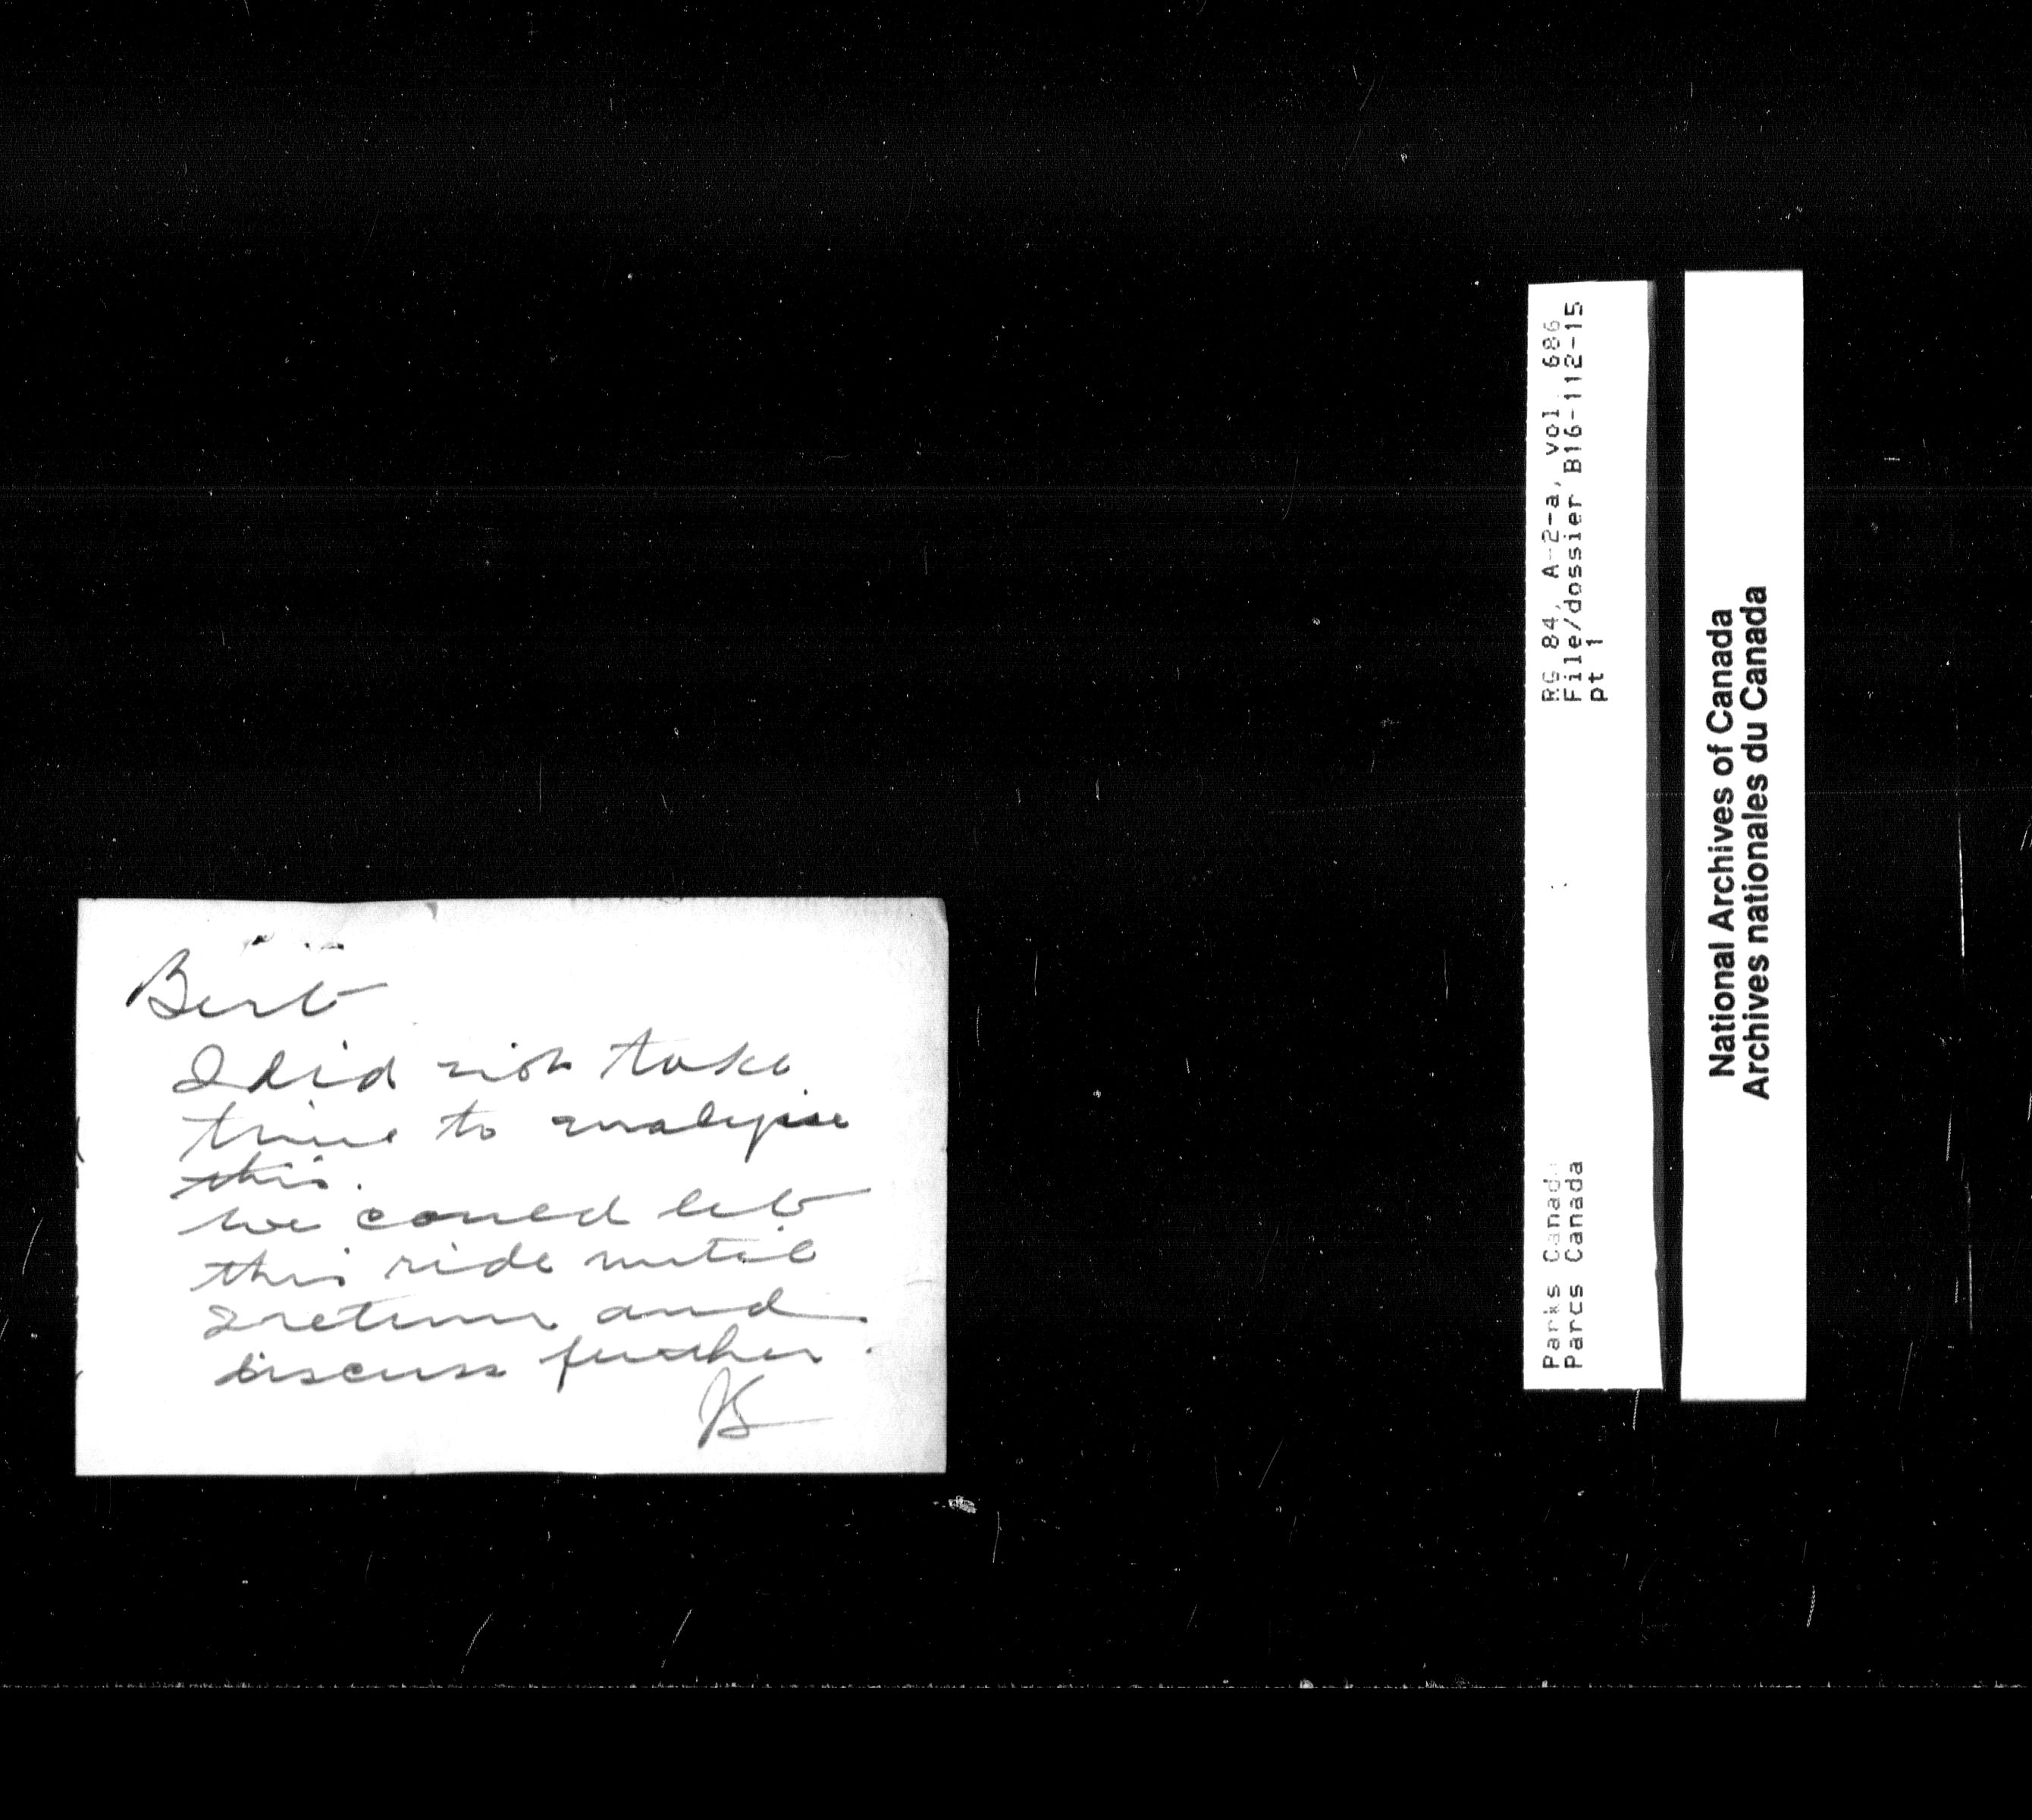 Bert
I did not take
time to analyise
this.
We could let
this ride until
I return and
discuss further.
JB
RG 84, A-2-a, vol. 686,
File/dossier B16-112-15
pt 1
Parks Canada
Parcs Canada
National Archives of Canada
Archives nationales du Canada